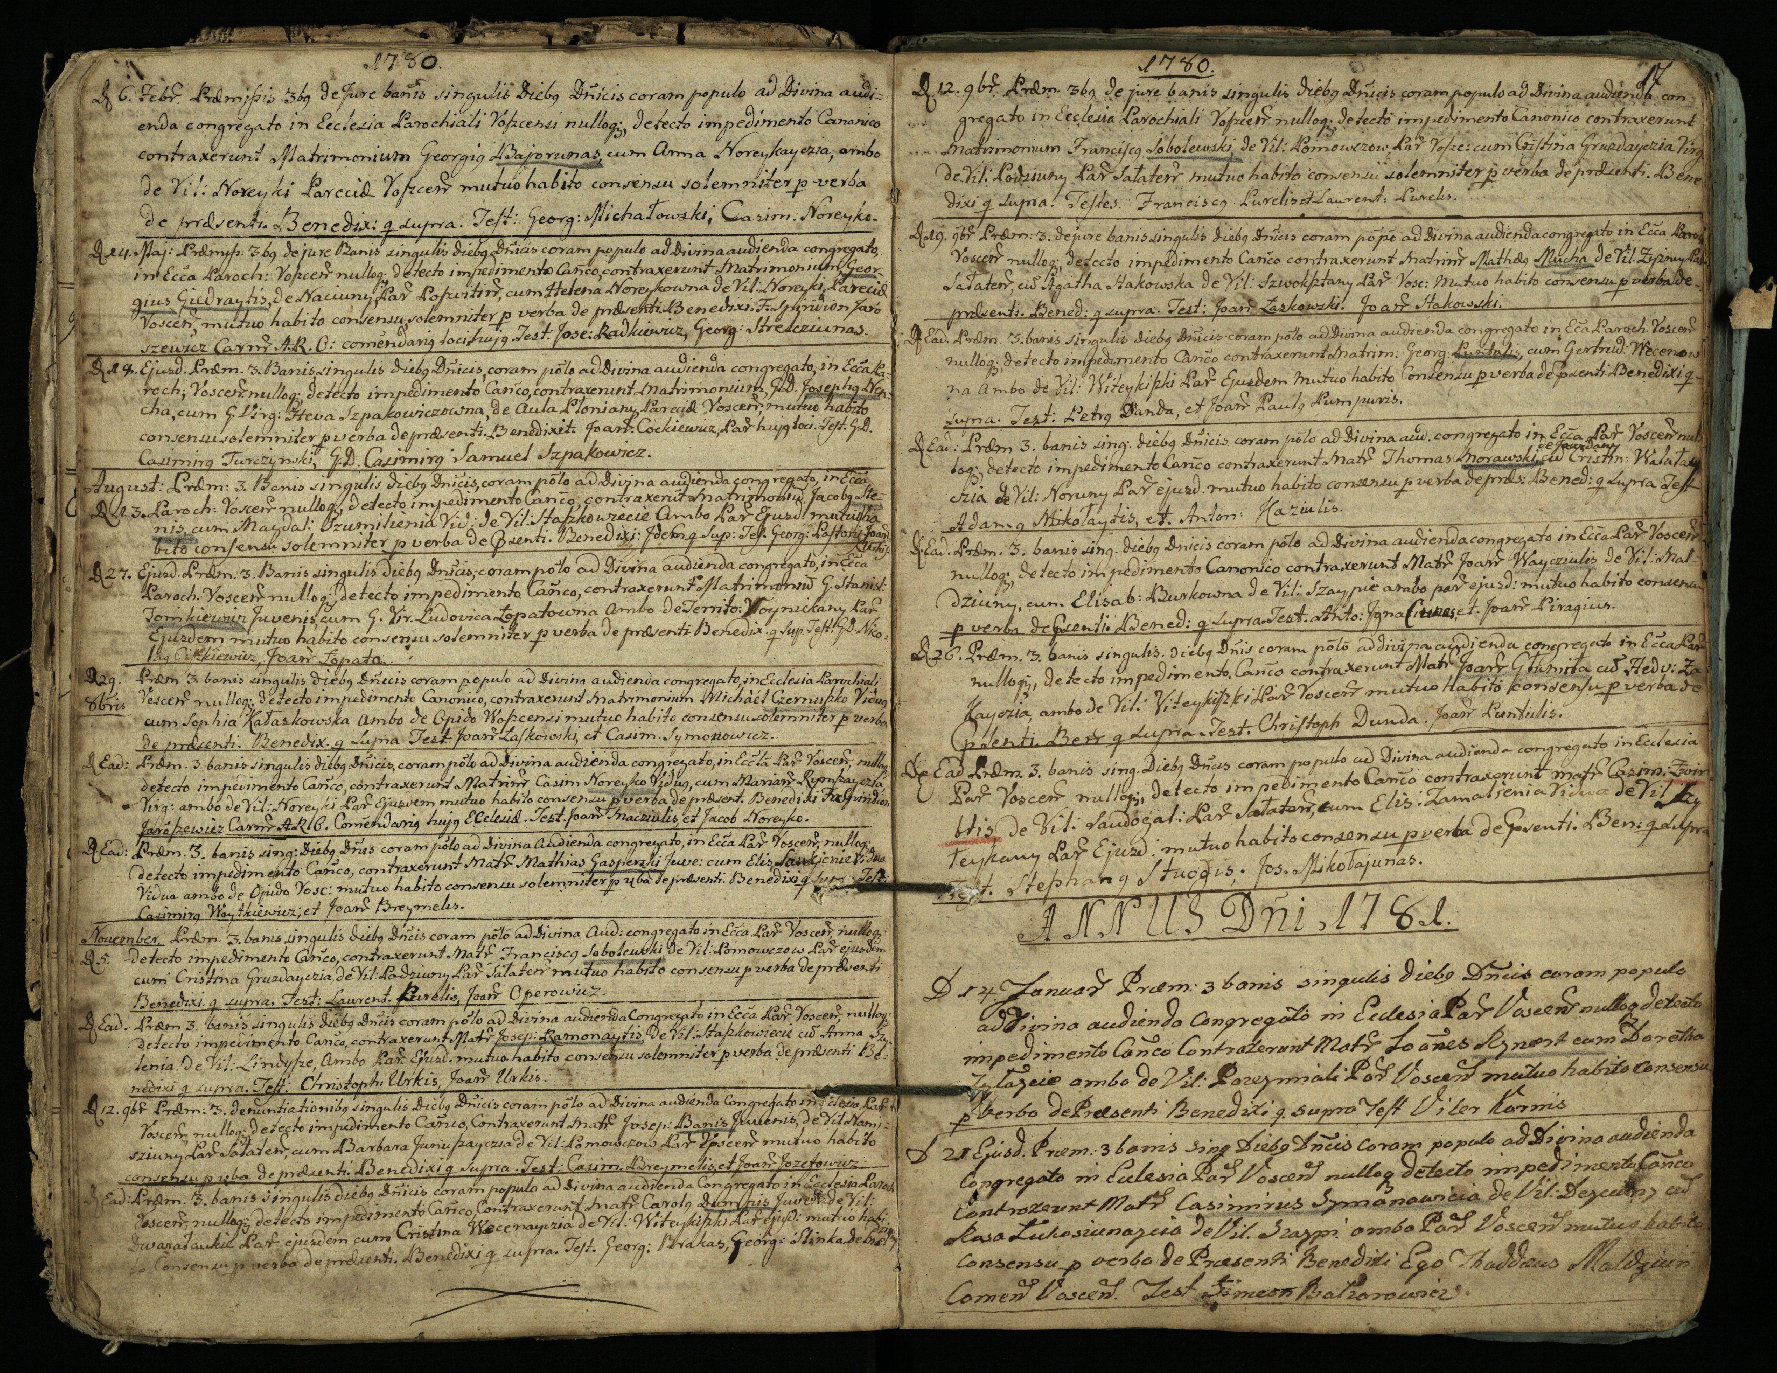 1780.
D 6. Febr̃. Præmissis 3bꝯ de Jure banis singulis Diebꝯ Dñicis coram populo ad Divina audi-
enda congregato in Ecclesia Parochiali Voszcensi nulloqꝫ detecto impedimento Canonico
contraxerunt Matrimonium Georgiꝯ Bajorunas, cum Anna Noreykayczia, ambo
de Vil: Noreyki Parœciæ Voszcen̄ mutuo habito consensu solemniter p verba
de præsenti. Benedix: q supra. Test: Georg: Michałowski, Casim. Noreyko.
D 14. Maj: Præmiss. 3bꝯ de jure Banis singulis diebꝯ Dñicis coram populo ad Divina audienda congregato,
in Ecc̃a Paroch: Voszcen̄ nulloqꝫ detecto impedimento Cañco, contraxerunt Matrimonium Geor-
gius Giedraytis, de Naciuny Par̃ cum Helena Noreykowna de Vil: Noreyki, Parœciæ
Voscen̄, mutuo habito consensu, solemniter p verba de præsenti. Benedixi. F. Spiridion Jaro
szewicz Carm̃ A.R.O: comendariꝯ loci hujꝯ. Test. Jose: Radkiewicz, Georg: Strelcziunas.
D 14. Ejusd. Præm. 3. Banis singulis Diebꝯ Dñicis, coram põlo ad Divina audienda congregato, in Ecc̃a Pa-
roch: Voscen̄ nulloqꝫ detecto impedimento Cañco, contraxerunt Matrimonium, G.D. Josephꝯ
cha, cum G. Virg: Heva Szpakowiczowna, de Aula Płoniany Parœciæ Voscen̄, mutuo habito
consensu solemniter p verba de præsenti. Benedixit. Joan̄. Cockiewicz, Par̃ hujꝯ loci. Test. G.D.
Casimirꝯ Turczynski, G.D. Casimirꝯ Samuel Szpakowicz.
August: Præm: 3. Banis singulis Diebꝯ Dñicis, coram põlo ad Divina audienda congregato, in Ecc̃a
D 23. Paroch: Voscen̄ nulloqꝫ detecto impedimento Cañco, contraxerũt Matrimoniũ Jacobꝯ Ste-
nis, cum Magdal: Szumilienia Vid: de Vil: Staszkowiecie Ambo Par̃ Ejusd. mutuo ha-
bito consensu solemniter p verba de Psenti. Benedixi: Idem q Sup: Tes. Georg:
D 27. Ejusd. Præm. 3. Banis singulis Diebꝯ Dñicis, coram põlo ad Divina audienda congregato, in Ecc̃a
Paroch. Voscen̄ nulloqꝫ detecto impedimento Cañco, contraxerunt Matrimoniũ G. Stanisl:
Tomkiewicz Juvenis, cum G. Vir: Ludovica Łopatowna Ambo de Territo: Woynickany Par̃
Ejusdem mutuo habito consensu solemniter p verba de præsenti Benedix. q Sup. Test: G.D. Niko-
laꝯ Cickiewicz, Joan̄ Łopata.
D 29. Præm̄ 3. banis singulis Diebꝯ Dñicis coram populo ad Divina audienda congregato, in Ecclesia Parochiali
8bris Voscen̄ nulloqꝫ detecto impedimento Canonico, contraxerunt Matrimonium Michaël Czernuszko Viduꝯ
cum Sophia Kałaszkowska ambo de Opido Woszcensi mutuo habito consensu solemniter p verba
de præsenti. Benedix. q supra Test Joan̄ Łaszkowski, et Casim. Symonowicz.
D Ead: Præm. 3 banis singulis diebꝯ Dñicis, coram põlo ad Divina audienda congregato, in Eccl̃a Par̃ Voscen̄, nulloqꝫ
detecto impedimento Cañco, contraxerunt Matrim̄ Casim: Noreyko Viduꝯ, cum Mariañ
Virg: ambo de Vil: Noreyki Par̃ Ejusdem mutuo habito consensu p verba de præsent. Benedixi Fr. Spiridion
Jaroszewicz Carm̃ A.R.O. Comendariꝯ hujꝯ Ecclesiæ. Test. Joan̄ Maciulis et Jacob Noreyko.
D Ead: Præm. 3. banis sing: Diebꝯ Dñcis coram põlo ad Divina audienda congregato, in Ecc̃a Par̃ Voscen̄, nulloqꝫ
detecto impedimento Cañco, contraxerunt Matr̃ Mathias Gasperski Juve: cum Elis
Vidua ambo de Opido Vosc: mutuo habito consensu solemniter p verba de præsenti. Benedixi q supra. Test:
Casimirꝯ Woytkiewicz, et Joan̄ Breymelis.
November Præm. 3. banis singulis diebꝯ Dñicis coram põlo ad Divina Aud: congregato in Ecc̃a Par̃ Voscen̄, nulloqꝫ
D 5. detecto impedimento Cañco, contraxerunt Matr̃ Franciscꝯ Sobolewski de Vil: Pomowczow Par̃ ejusdm̄
cum Cristina Gruzdayczia de Vil: Podziuny Par̃ Sałaten̄ mutuo habito consensu p verba de præsenti
Benedixi q supra. Test: Laurent. Purelis, Joan̄ Operowicz.
D Ead. Præm 3. banis singulis Diebꝯ Dñicis coram põlo ad Divina audienda Congregato in Ecc̃a Par̃ Voscen̄, nulloqꝫ
detecto impedimento Cañco, contraxerunt Matr̃ Josep: Ramonaytis, De Vil: Staszkowiecie cũ Anna
lenia de Vil: Lindysze, Ambo Par̃ Ejusd. mutuo habito consensu solemniter p verba de præsenti Be-
nedixi q supra. Test. Christoph: Urkis, Joan̄ Urkis.
D 12. 9br̃ Præm: 3. denuntiationibꝯ singulis Diebꝯ Dñicis coram põlo ad Divina audienda Congregato in Ecclesia Par̃
Voscen̄ nulloqꝫ detecto impedimento Cañco, Contraxerunt Matr̃ Josep: Banis Juvenis, de Vil Nami-
sziuny Par̃ Sałaten̄, cum Barbara Junuszayczia de Vil: Pomowczow Par̃ Voscen̄ mutuo habito
consensu p verba de præsenti. Benedixi q supra. Test. Casim. Breymelis, et Joan̄ Jozefowicz.
D Ead: Præm. 3. banis singulis diebꝯ Dñicis coram populo ad Divina audienda Congregato in Ecclesia Paroch
Voscen̄, nulloqꝫ detecto impedimento Cañco, Contraxerunt Matr̃ Carolꝯ Dumpis Juven̄ de Vil:
Par̃ ejusdem cum Cristina Wecenayczia de Vil: Witeykiszki Par̃ ejusd: mutuo habi:
consensu p verba de præsenti. Benedixi q supra. Test. Georg: Brakas, George: Slinka
1780.
17
D 12. 9br̃. Præm. 3bꝯ de jure banis singulis Diebꝯ Dñicis coram populo ad Divina audienda con
gregato in Ecclesia Parochiali Voszcen̄ nulloqꝫ detecto impedimento Canonico contraxerunt
Matrimonium Franciscꝯ Sobolewski, de Vil: Pomowczow Par̃ Vosze: cum Cristina Gruzdayczia Virg
de Vil: Podziuny Par̃ Sałaten̄ mutuo habito consensu solemniter p verba de præsenti. Bene
dixi q supra. Testes: Franciscꝯ Purelis et Laurent: Purelis.
D 19. 9br̃. Præm: 3. de jure banis singulis diebꝯ Dñicis coram põpo ad Divina audienda congregato in Ecc̃a Paroch
Voscen̄ nulloqꝫ detecto impedimento Cañco contraxerunt Matrim̃ Mathæꝯ Mucha de Vil:
Sałaten̄, cũ Agatha Stakowska de Vil: Szwoksztany Par̃ Vosc: Mutuo habito consensu p verba de
præsenti. Bened: q supra. Test: Joan̄ Laskowski. Joan̄ Stakowski.
D Ead. Præm. 3. banis singulis diebꝯ Dñicis coram põlo ad Divina audienda congregato in Ecc̃a Paroch. Voscen̄
nulloqꝫ detecto impedimento Cañco contraxerunt Matrim: Georg: cum Gertrud: Wecenow
na Ambo de Vil: Witeykiszki Par̃ Ejusdem Mutuo habito Consensu p verba de Psenti Benedixi q
supra. Test. Petrꝯ Danda, et Joan̄ Paulꝯ Pumpuris.
D Ead: Præm 3. banis sing. diebꝯ Dñicis coram põlo ad Divina aud. congregato in Ecc̃a Par̃ Voscen̄ nul
loqꝫ detecto impedimento Cañco contraxerunt Matr̃ Thomas Morawski cũ Cristin: Walatay
czia de Vil: Noruny Par̃ ejusd. mutuo habito consensu p verba de præs. Bened: q supra Test
Adamꝯ Mikołaytis, et. Anton: Kaziulis.
D Ead. Præm. 3. banis sing. diebꝯ Dñicis coram põlo ad Divina audienda congregato in Ecc̃a Par̃ Voscen̄
nulloqꝫ detecto impedimento Canonico contraxerunt Matr̃ Joan̄ Wayczulis de Vil: Mal-
dziuny, cum Elisab: Burkowna de Vil: Szaypie ambo par̃ ejusd: mutuo habito consensu
p verba de Psenti Bened: q supra. Test. Anto: Igna et. Joan̄ Piragius.
D 26. Præm. 3. banis singulis. diebꝯ Dñis coram põlo ad divina audienda congregato in Ecc̃a Par̃
nulloqꝫ detecto impedimento Cañco contraxerunt Matr̃ Joan̄ Głumita cũ Hedv: Za
Kayczia, ambo de Vil: Viteykiszki Par̃ Voscen̄ mutuo habito consensu p verba de
Psenti. Ben̄ q supra. Test. Christoph Dunda. Joan̄ Puntulis.
D Ead Præm. 3. banis sing. Diebꝯ Dñcis coram populo ad Divina audienda congregato in Ecclesia
Par̃ Voscen̄ nulloqꝫ detecto impedimento Cañco contraxerunt Matr̃ Casim.
blis de Vil: Par̃ Sałaten̄, cum Elis: Zamalienia Vidua de Vil
teykany Par̃ Ejusd: mutuo habito consensu p verba de Psenti. Ben: q supra
Test. Stephanꝯ Stuogis, Jos. Mikołajunas.
ANNUS Dñi 1781.
D 14 Januar̃ Præm: 3 banis singulis diebꝯ Dñcis coram populo
ad Divina audienda Congregato in Ecclesia Par̃ Voscen̄ nulloq detecto
impedimento Cañco Contraxerunt Matr̃ Joañes Rynart cum Dorotha
ambo de Vil: Poezmiali Par̃ Voscen̄ mutuo habito Consensu
p verba de Præsenti Benedixi q. supra Test Viter Karnis
D 21 Ejusd. Præm. 3 banis sing Diebꝯ Dñcis coram populo ad Divina audienda
Congregato in Eclesia Par̃ Voscen̄ nulloq detecto impedimento Cañco
Contraxerunt Matr̃ Casimirus Symanowicia de Vil: cũ
Rasa Łukosiunaycia de Vil: Szazpi ambo Par̃ Voscen̄ mutuo habito
consensu p verba de Præsenti Benedixi Ego Thaddæus Maldziun
Comen̄ Voscen̄. Test Simeon Balzarowicz